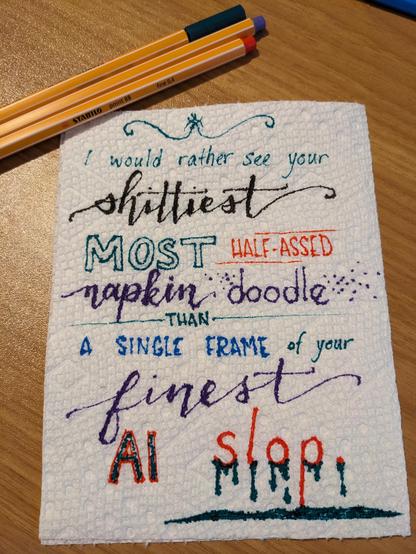 STABILO point 88 fine 0.4
I would rather see your
shittiest
MOST HALF-ASSED
napkin doodle
THAN
A SINGLE FRAME of your
finest
AI slop.